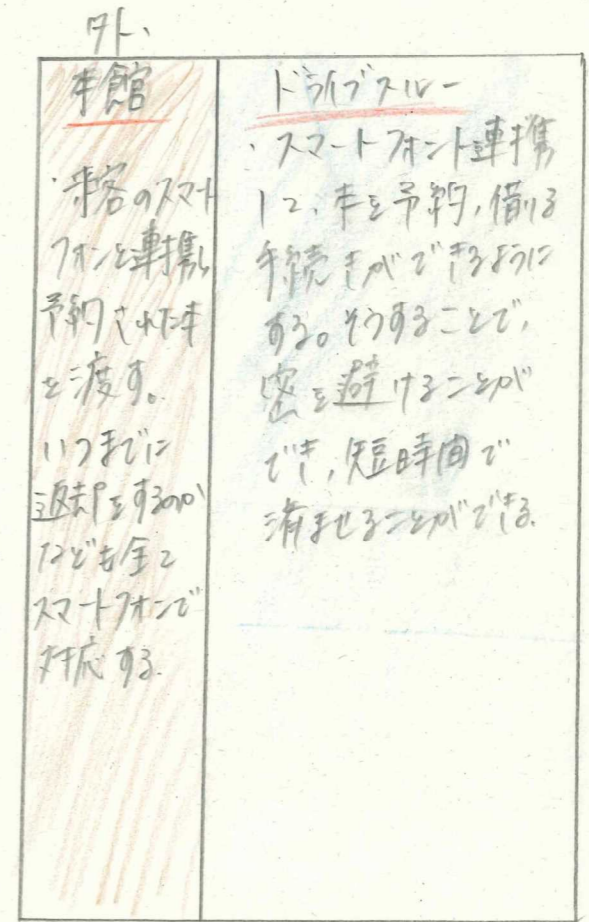 外、
本館
・来客のスマート
フォンと連携し
予約された本
を渡す。
いつまでに
返却をするのか
なども全て
スマートフォンで
対応する。
ドライブスルー
・スマートフォンと連携
して、本を予約、借りる
手続きができるように
する。そうすることで、
密を避けることが
でき、短時間で
済ませることができる。